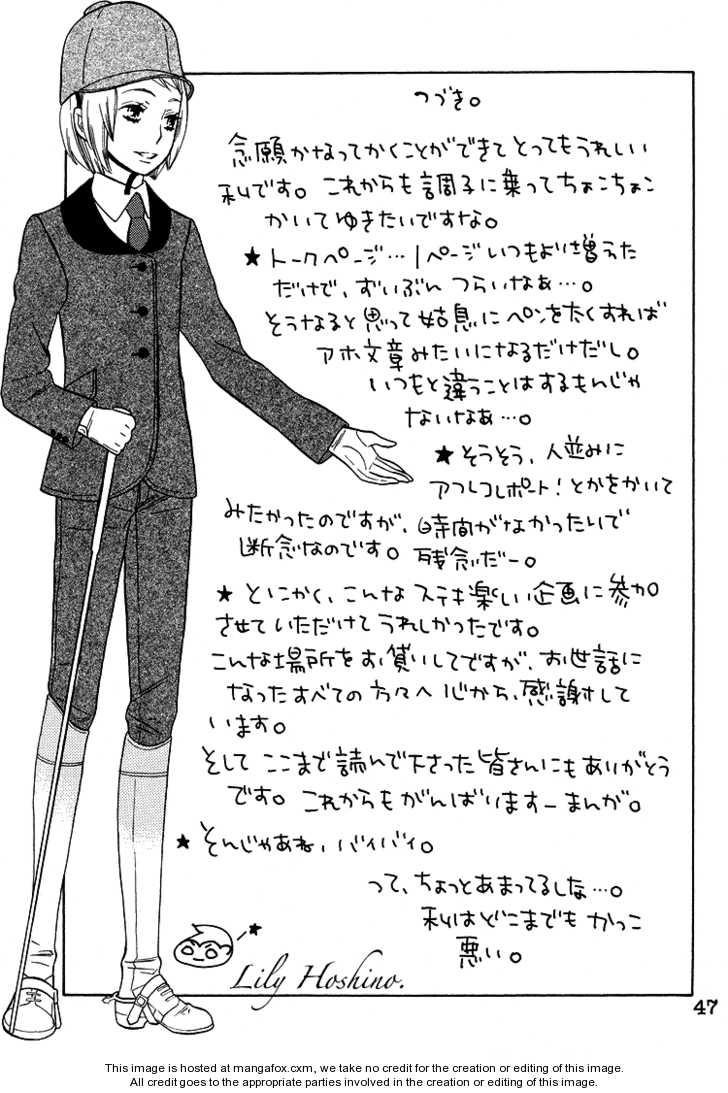 つづき。
念願かなってかくことができてとってもうれしい
私です。これからも調子に乗ってちょこちょこ
かいてゆきたいですな。
★トークページ…1ページいつもより増えた
だけで、ずいぶんつらいなぁ…。
そうなると思って姑息にペンを太くすれば
アホ文章みたいになるだけだし。
いつもと違うことはするもんじゃ
ないなぁ…。
★そうそう、人並みに
アフレコレポート！とかをかいて
みたかったのですが、時間がなかったいで
断念なのです。残念だー。
★とにかく、こんなステキ楽しい企画に参加
させていただけてうれしかったです。
こんな場所をお借いしてですが、お世話に
なったすべての方々へ心から、感謝して
います。
そしてここまで読んで下さった皆さんにもありがとう
です。これからもがんばいますーまんが。
★そんじゃあね、バイバイ。
って、ちょっとあまってるしな…。
私はどこまでもかっこ
悪い。
Lily Hoshino.
47
This image is hosted at mangafox.cxm, we take no credit for the creation or editing of this image.
All credit goes to the appropriate parties involved in the creation or editing of this image.